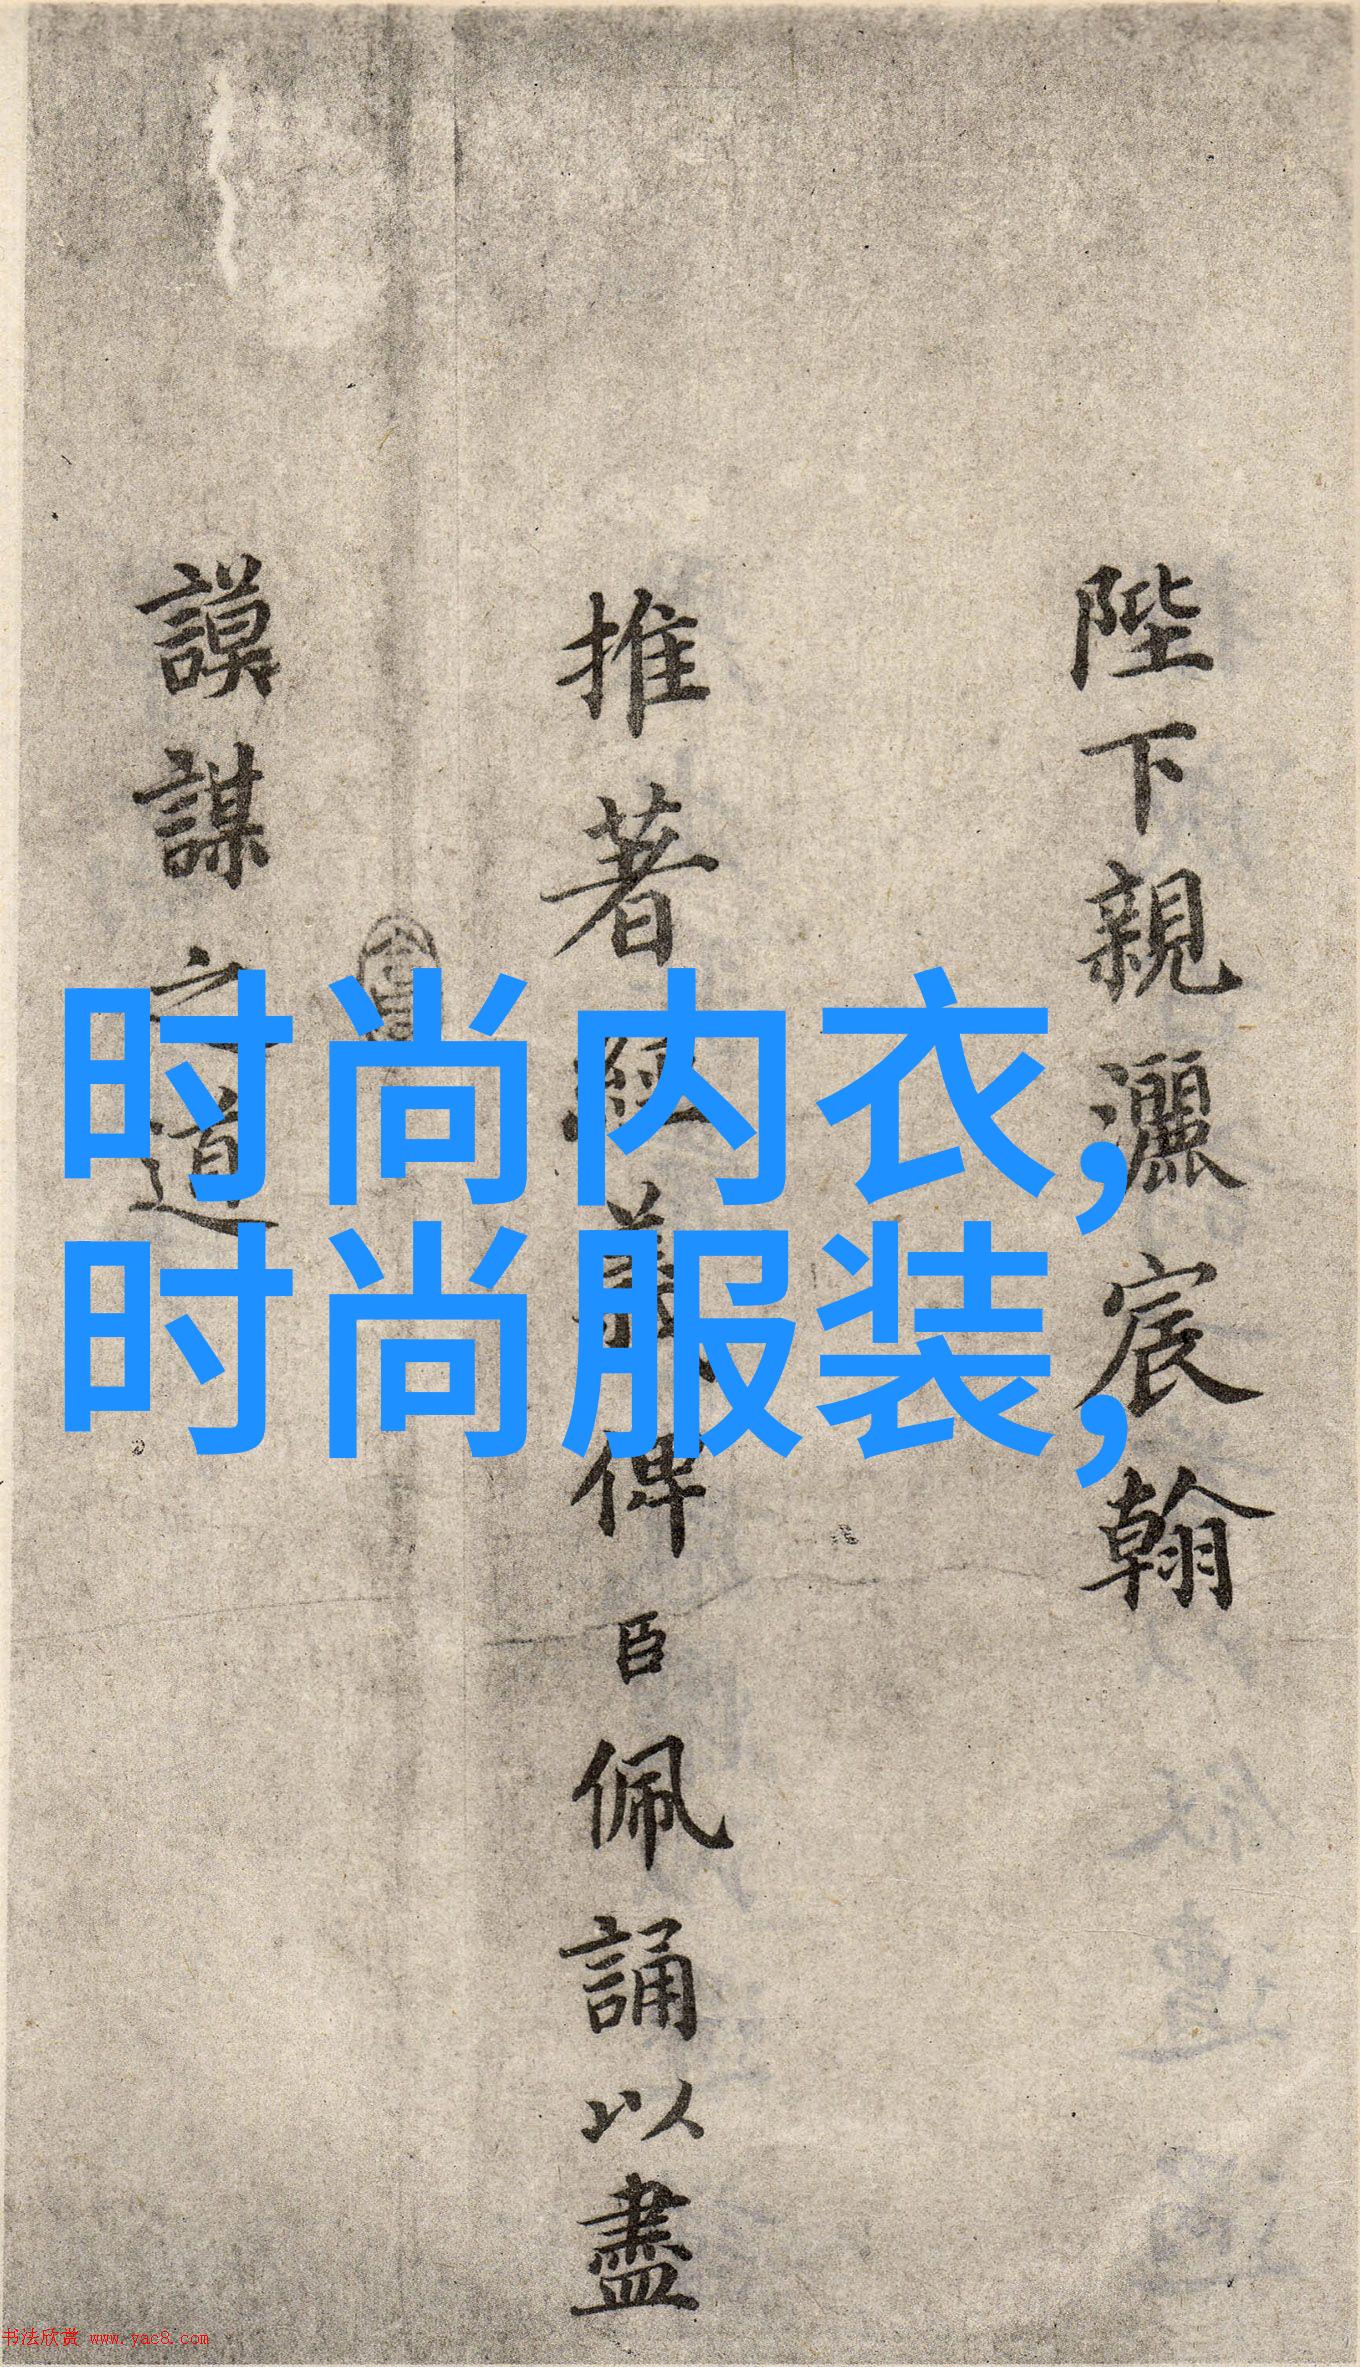 陛下親灑宸翰
推著經義俾臣佩誦以盡
謨謀之道
时尚内衣,
时尚服装,
书法欣赏 www.yac8.com